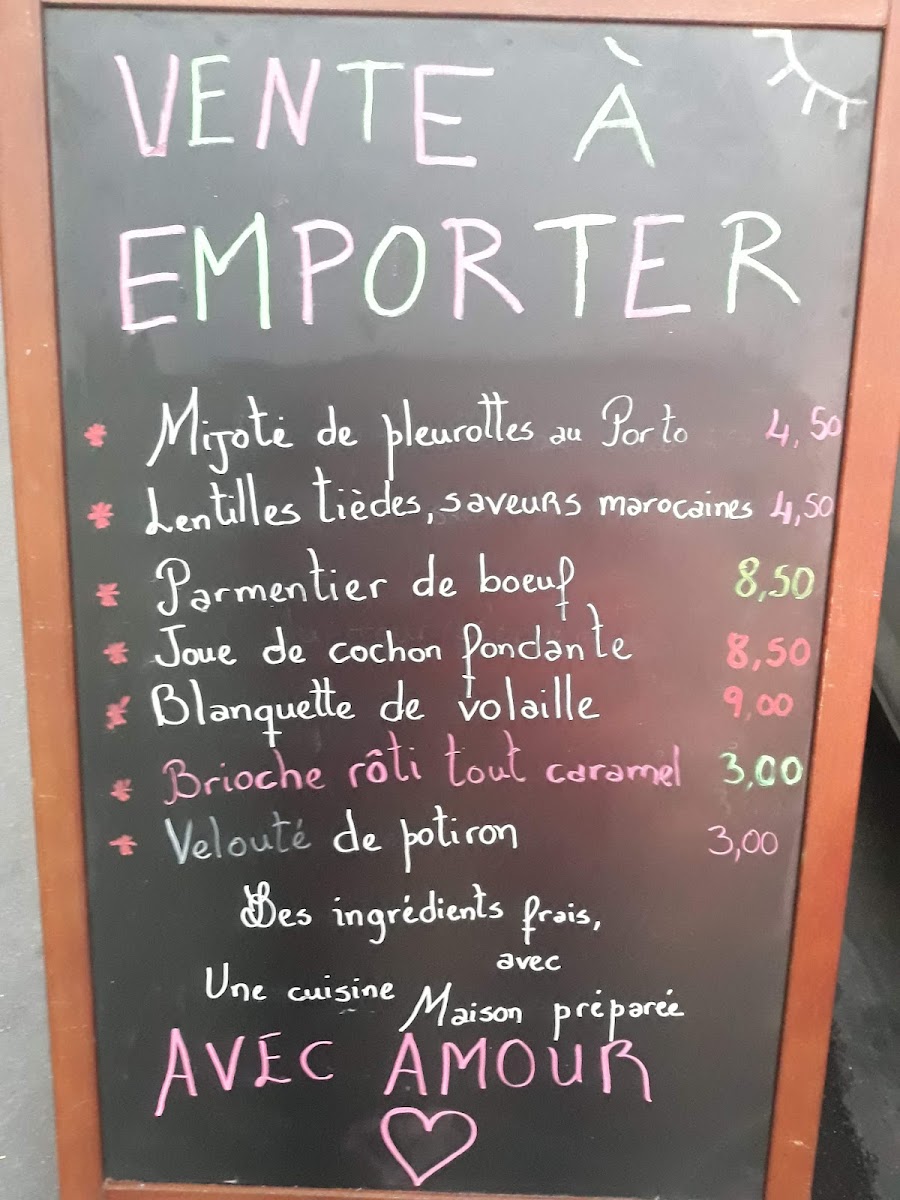 VENTE À
EMPORTER
* Mijoté de pleurottes au Porto 4,50
* Lentilles tièdes, saveurs marocaines 4,50
* Parmentier de boeuf 8,50
* Joue de cochon fondante 8,50
* Blanquette de volaille 9,00
* Brioche rôti tout caramel 3,00
* Velouté de potiron 3,00
Des ingrédients frais,
avec
Une cuisine Maison préparée
AVEC AMOUR